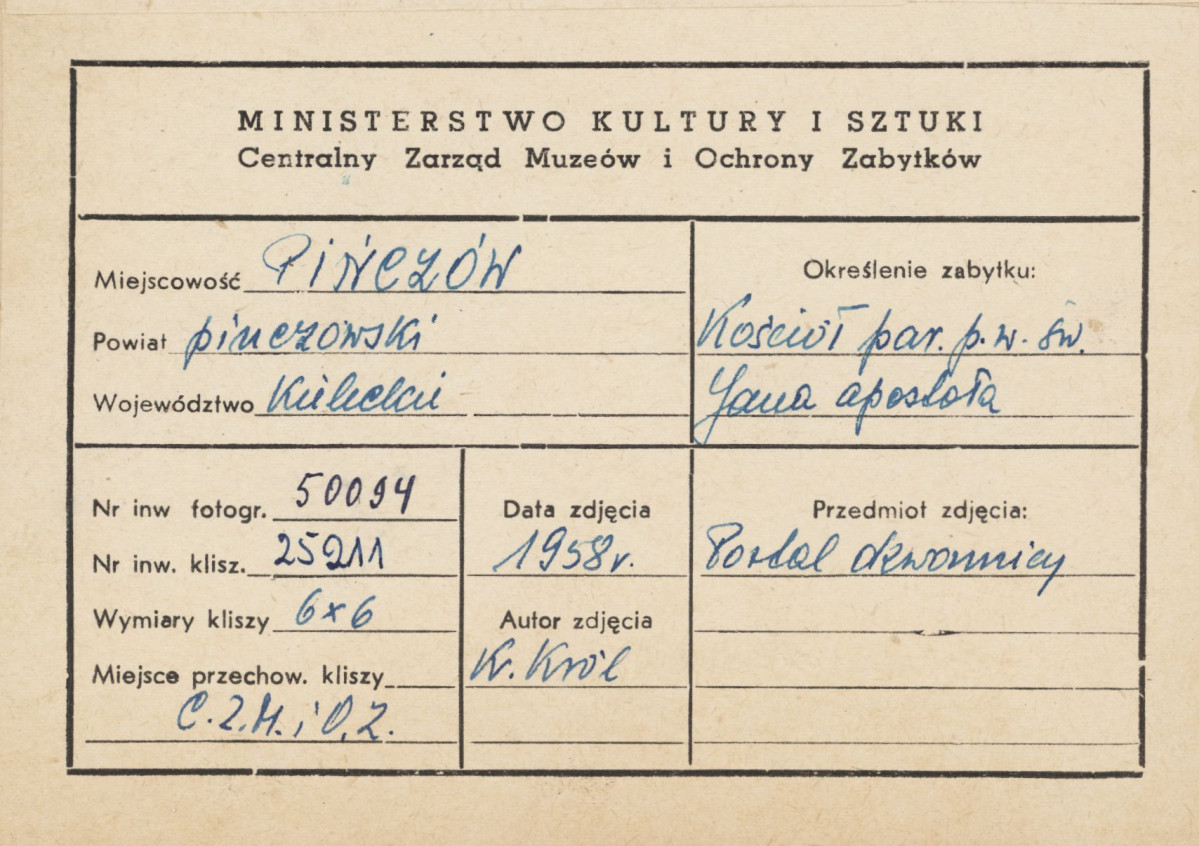 MINISTERSTWO KULTURY I SZTUKI
Centralny Zarząd Muzeów i Ochrony Zabytków
Miejscowość PIŃCZÓW
Powiat pinczowski
Województwo Kieleckie
Określenie zabytku:
Kościół par. p.w. św.
Jana apostoła
Nr inw fotogr. 50094
Nr inw. klisz. 25911
Wymiary kliszy 6x6
Miejsce przechow. kliszy
C.Z.M. i O.Z.
Data zdjęcia
1958r.
Autor zdjęcia
K. Król
Przedmiot zdjęcia:
Portal dzwonnicy